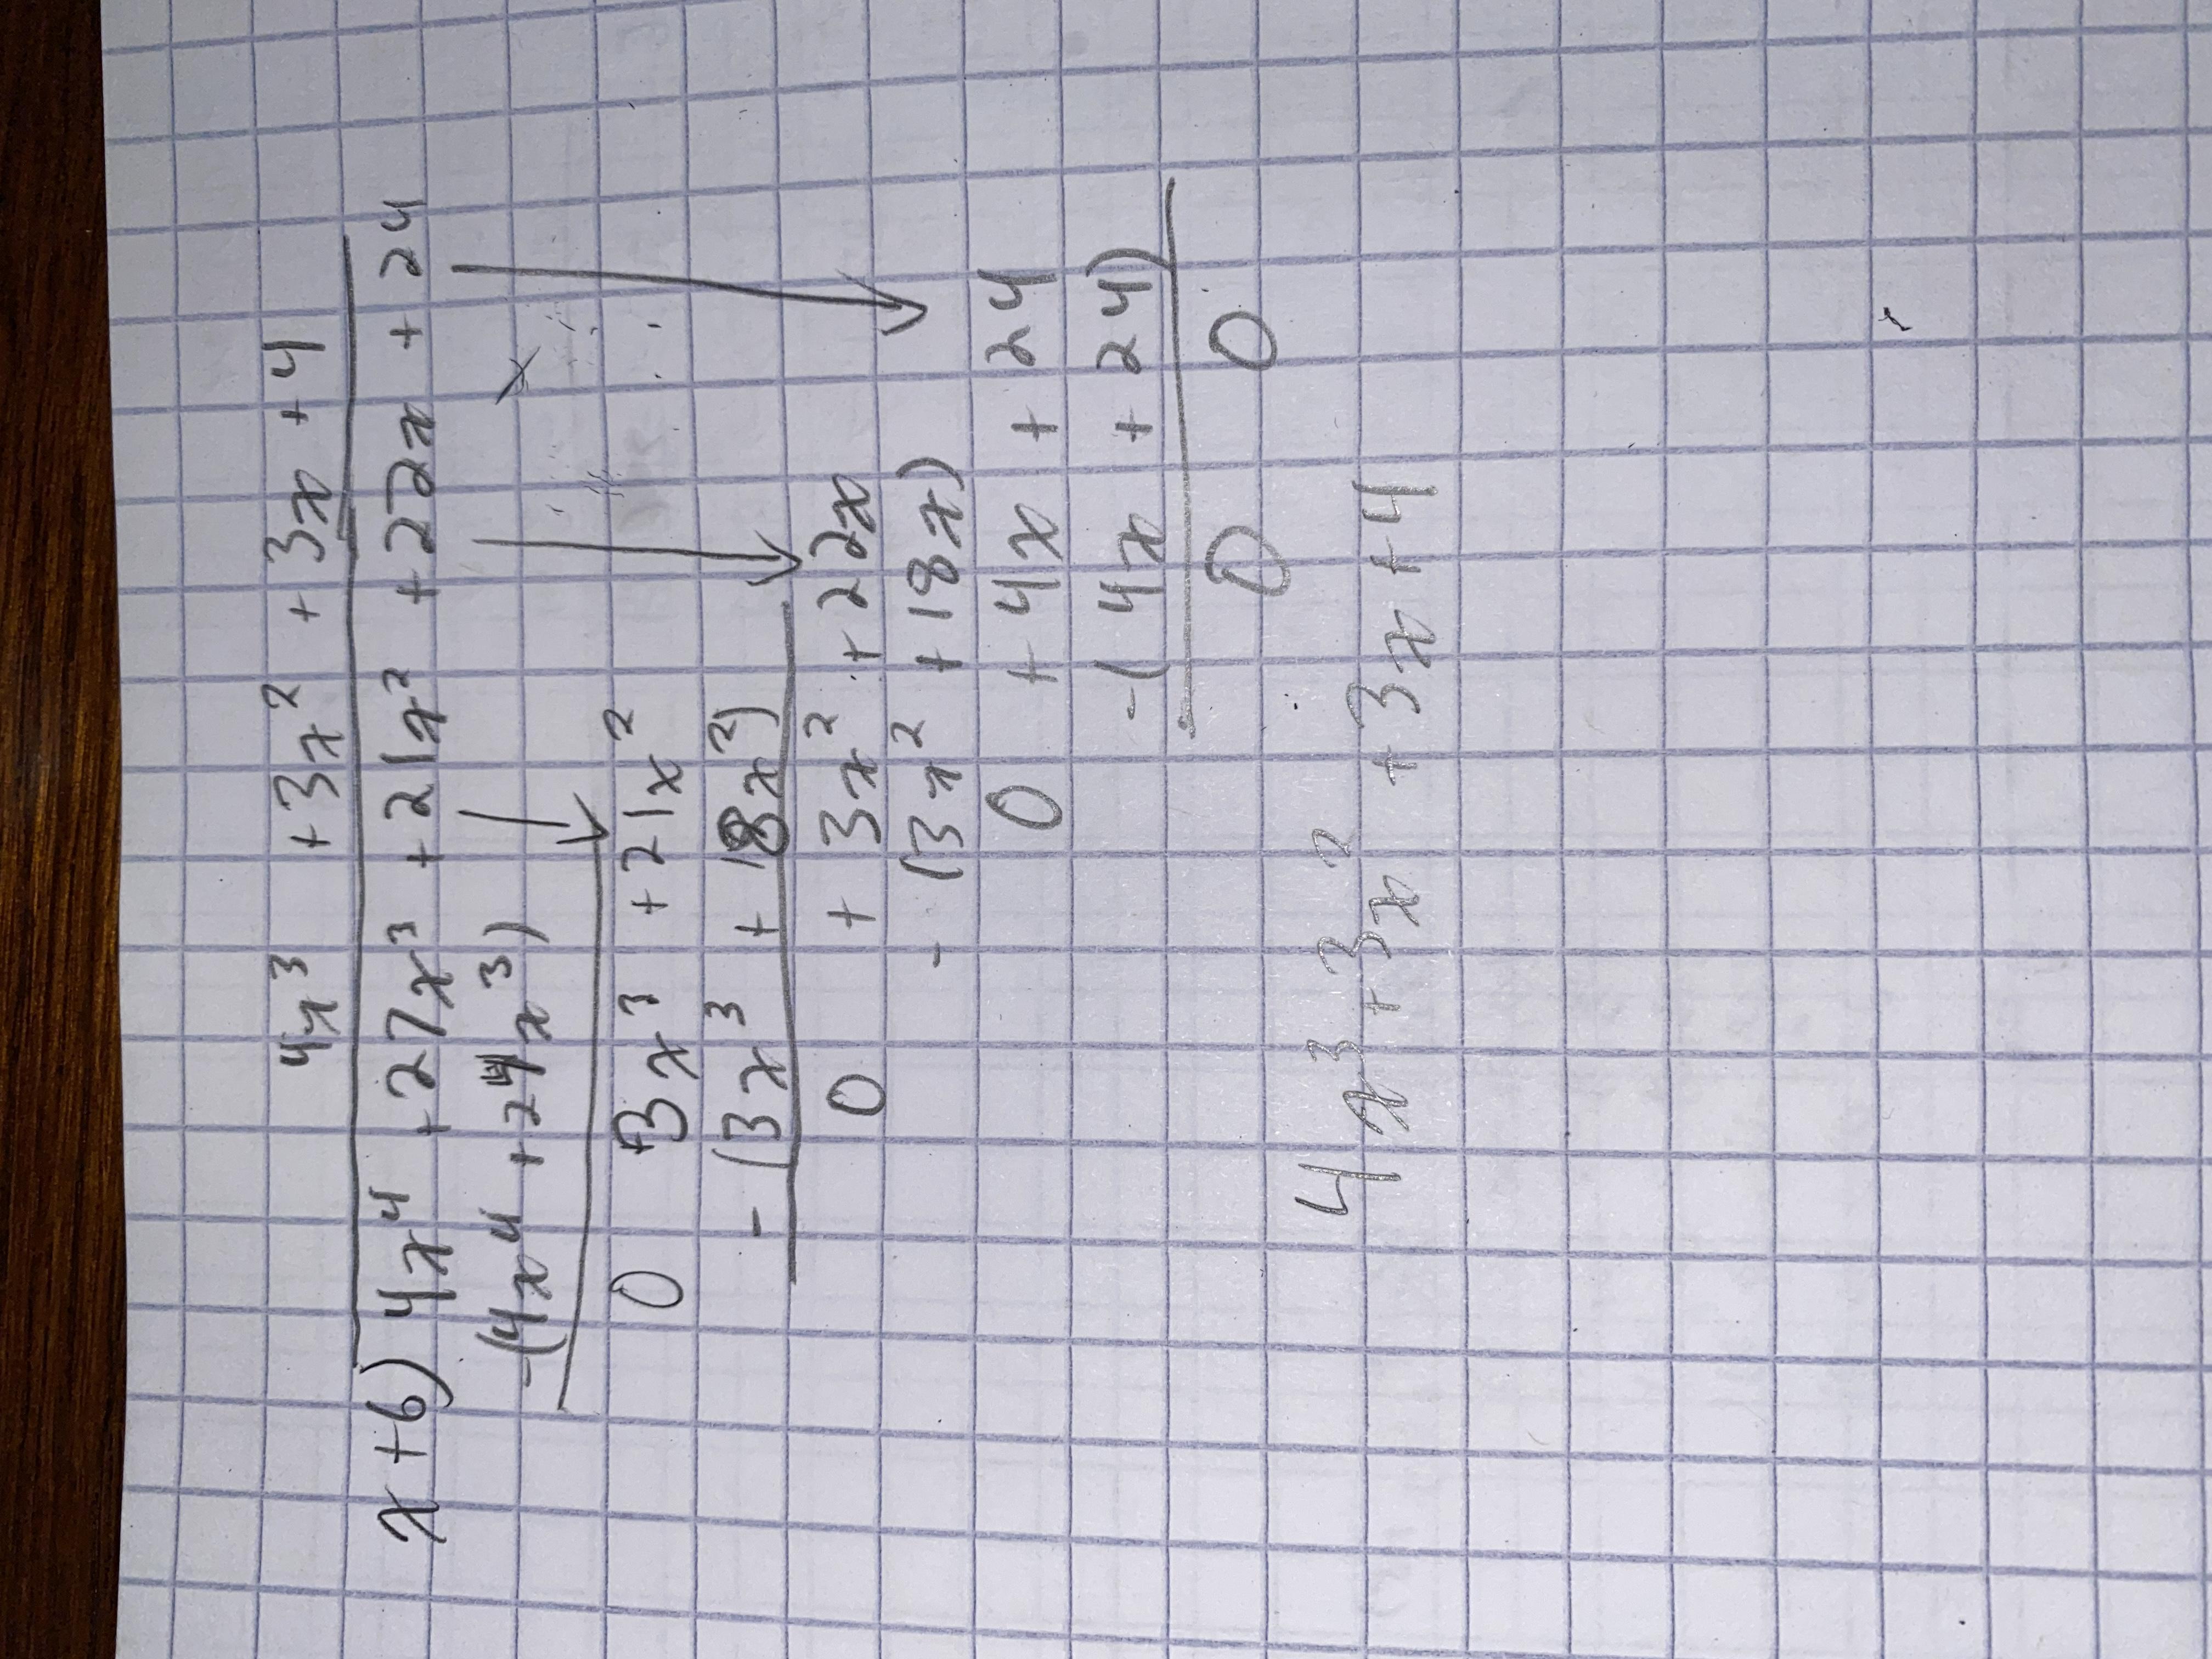 4x³ + 3x² + 3x + 4
x + 6) 4x⁴ + 27x³ + 21x² + 22x + 24
-(4x⁴ + 24x³)
0 + 3x³ + 21x²
- (3x³ + 18x²)
0 + 3x² + 22x
- (3x² + 18x)
0 + 4x + 24
-(4x + 24)
0 0
4x³ + 3x² + 3x + 4